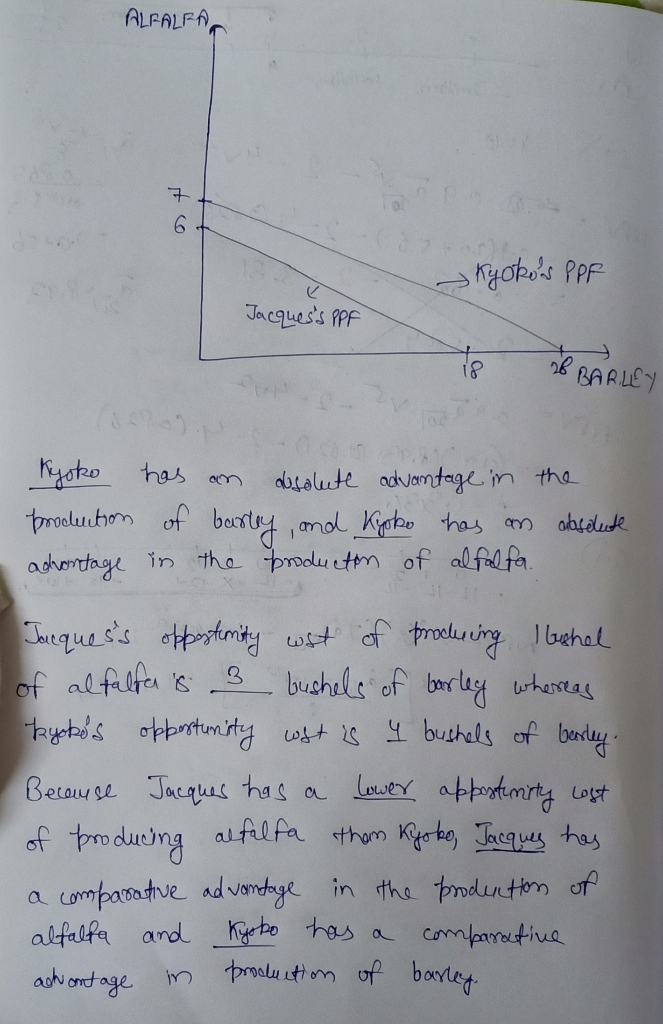 ALFALFA
7
6
Kyoko's PPF
Jacques's PPF
18
28
BARLEY
Kyoko has an absolute advantage in the
production of barley, and Kyoko has an absolute
advantage in the production of alfalfa.
Jacques's opportunity cost of producing 1 bushel
of alfalfa is 3 bushels of barley whereas
kyoko's opportunity cost is 4 bushels of barley.
Because Jacques has a lower opportunity cost
of producing alfalfa than Kyoko, Jacques has
a comparative advantage in the production of
alfalfa and Kyoko has a comparative
advantage in production of barley.